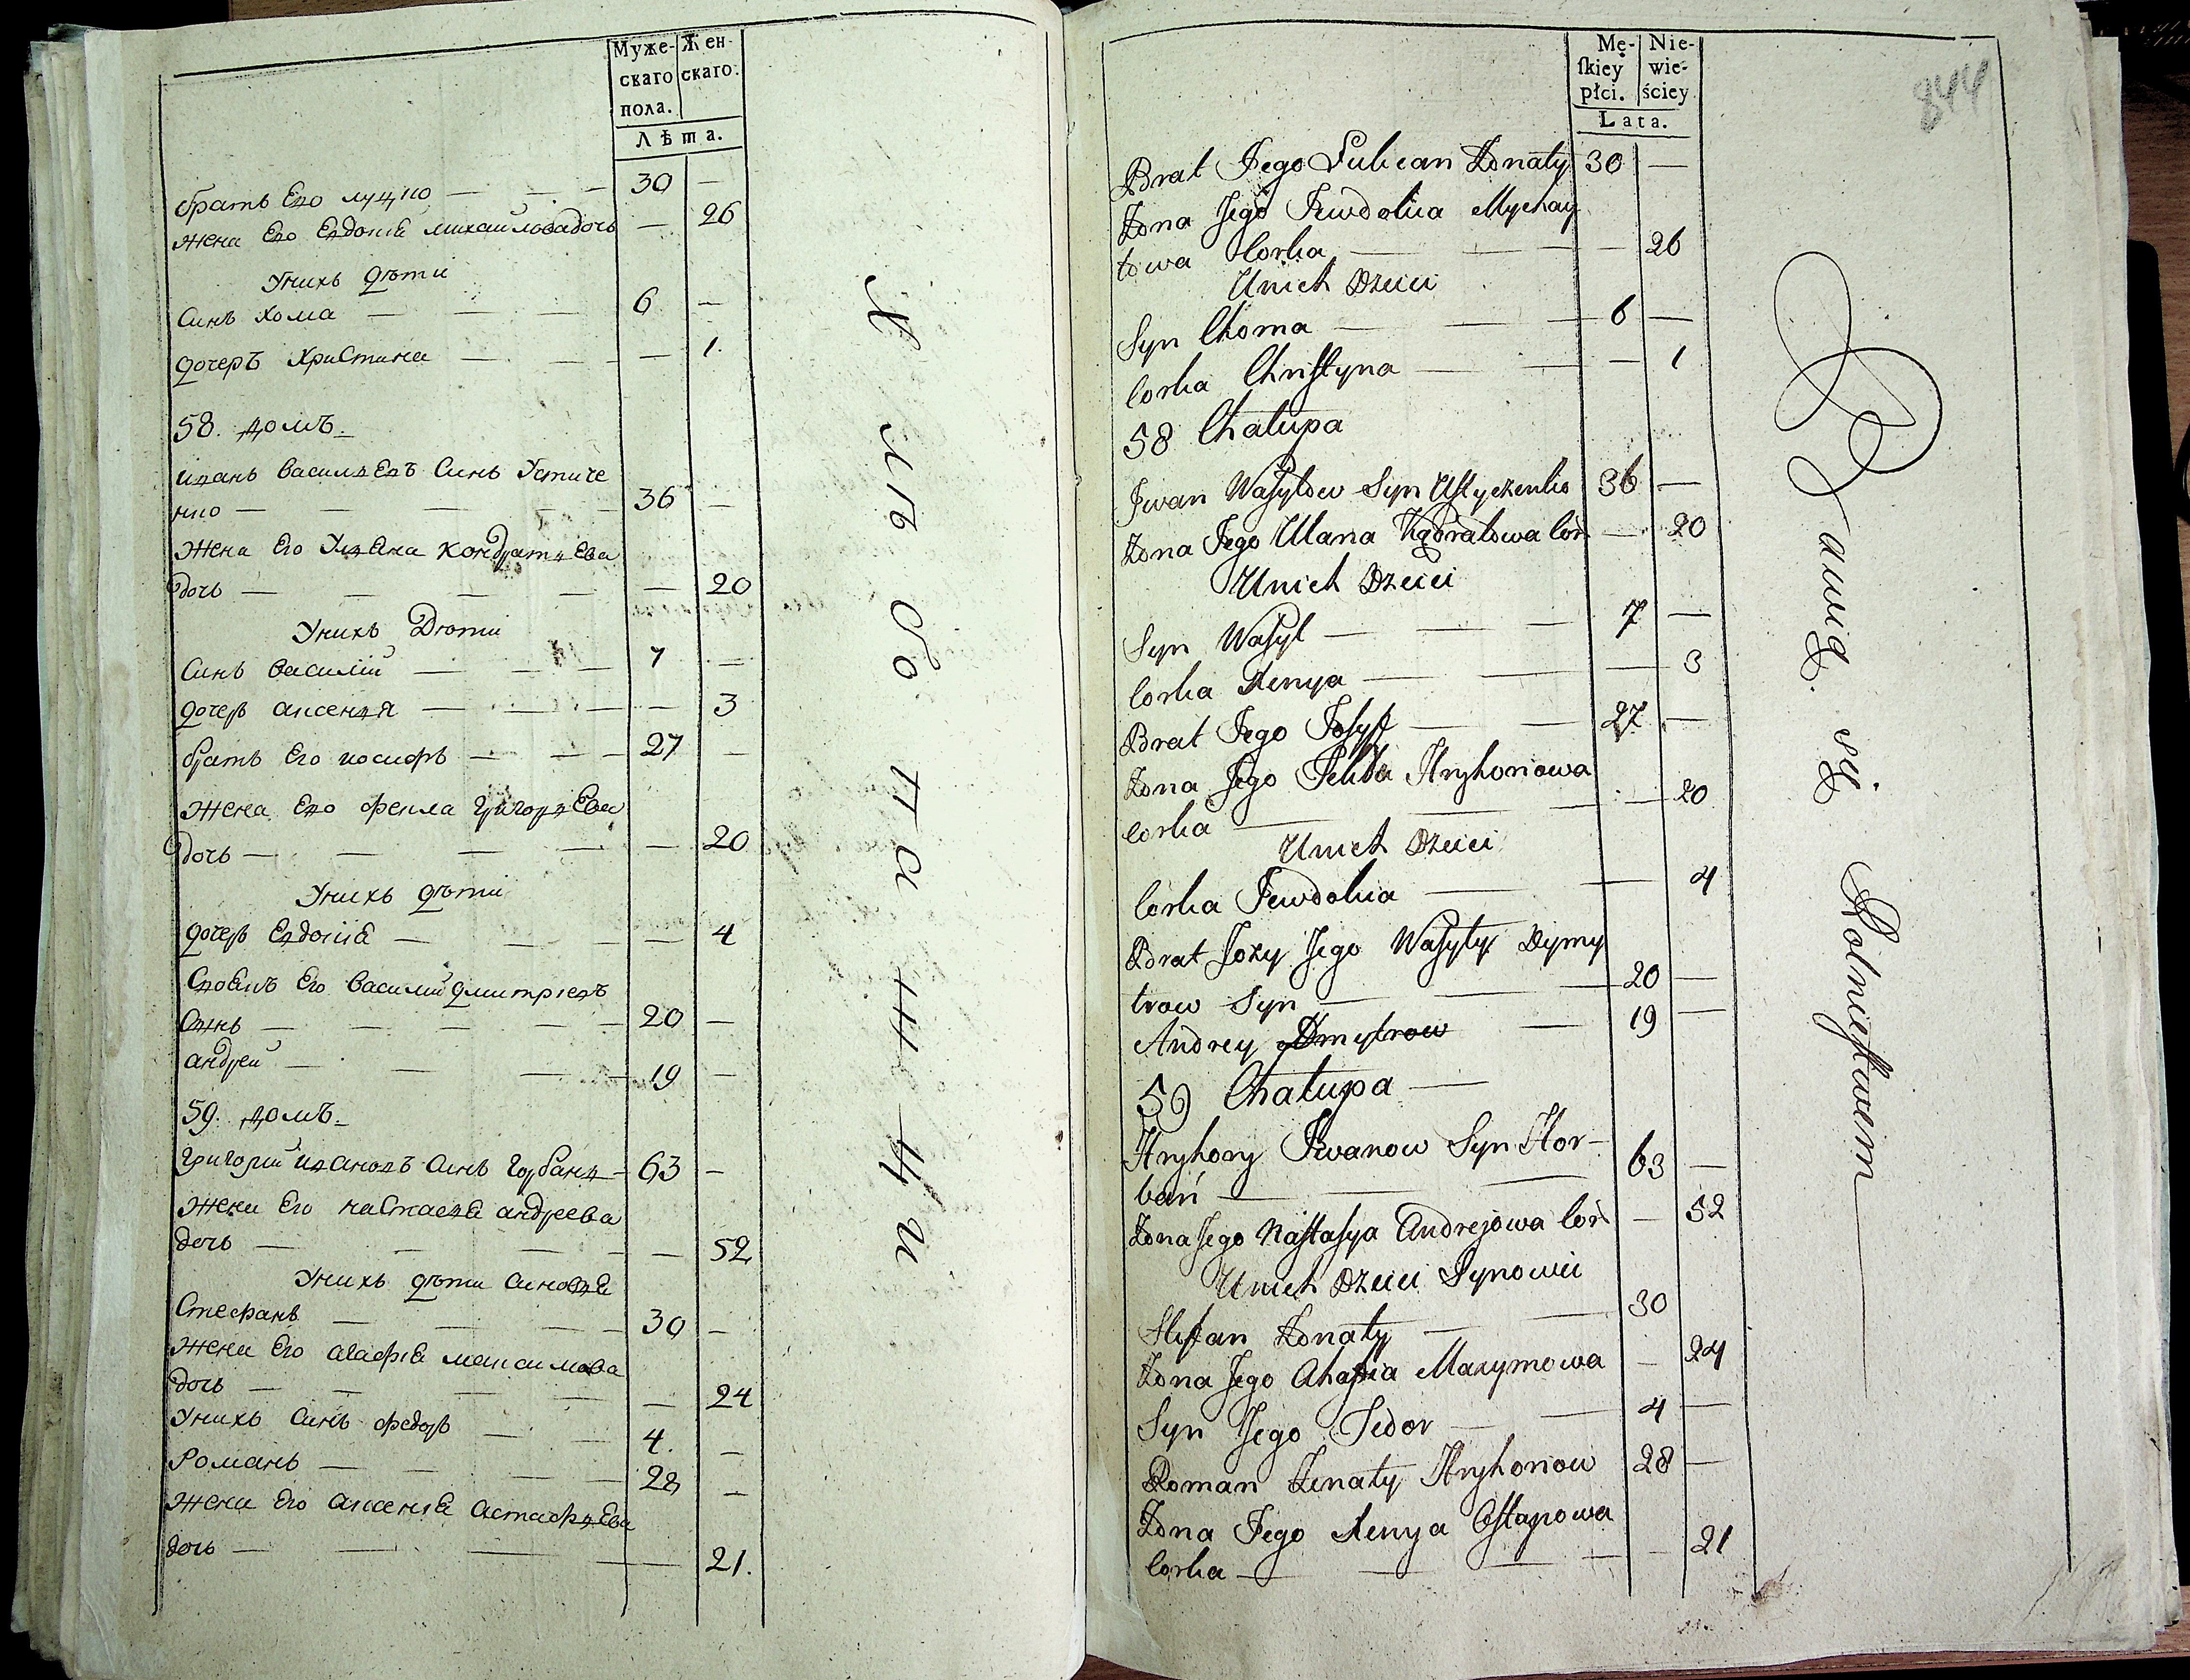 Муже- Жен-
скаго скаго.
пола.
Лѣта.
братъ Его луцко — 30 —
жена Его Евдокіѣ михайловадочь — 26
Унихъ дѣти
Синъ Хома — 6 —
дочеръ Христина — 1.
58. домъ.
иванъ василЕвъ Синъ Устиче
нко — 36 —
жена Его Уляна кондратъЕва
дочь — 20
Унихъ Дѣти
Синъ василій — 7 —
дочеръ аксенія — 3
братъ Его иосифъ — 27 —
жена Его фекла григорЕва
дочь — 20
Унихъ дѣти
дочеръ Евдокіѣ — 4
Своякъ Его василий дмитріевъ
Синъ — 20 —
андрей — 19 —
59. домъ.
григорий ивановъ Синъ горбань — 63 —
жена Его настасіѣ андреева
дочь — 52
Унихъ дѣти Синовѣ
Стефанъ — 30 —
жена Его агафіѣ максимова
дочь — 24
Унихъ Синъ федоръ — 4. —
Романъ — 28 —
жена Его аксеніѣ астафіЕва
дочь — 21.
Хлѣбопашци
844
Mę- Nie-
ſkiey wie-
płci. ściey
Lata.
Brat Jego Żonaty 30 —
Żona Jego Jewdokia Mychay
łowa Corka — 26
Unich Dzieci
Syn Choma — 6 —
Corka Chriſtyna — 1
58 Chałupa
Jwan Waſylow Syn Uſtyczenko 36 —
Żona Jego Ulana Kądratowa Cor — 20
Unich Dzieci
Syn Waſyl — 7 —
Corka Xenya — 3
Brat Jego Joſyf — 27 —
Żona Jego Fekla Hryhoriowa
Corka — 20
Unich Dzieci
Corka Jewdokia — 4
Brat Żony Jego Waſyly Dymy
trow Syn — 20 —
Andrey Dmytrow — 19 —
59 Chałupa —
Hryhory Jwanow Syn Hor-
bań — 63 —
Żona Jego Naſtaſya Andrejowa Cor — 52
Unich Dzieci Synowie
Stefan Żonaty — 30
Żona Jego Ahafia Maxymowa — 24
Syn Jego Fedor — 4 —
Roman Żenaty Hryhoriow 28 —
Żona Jego Xenya Oſtapowa
Corka — 21
Bawią się Rolnictwem